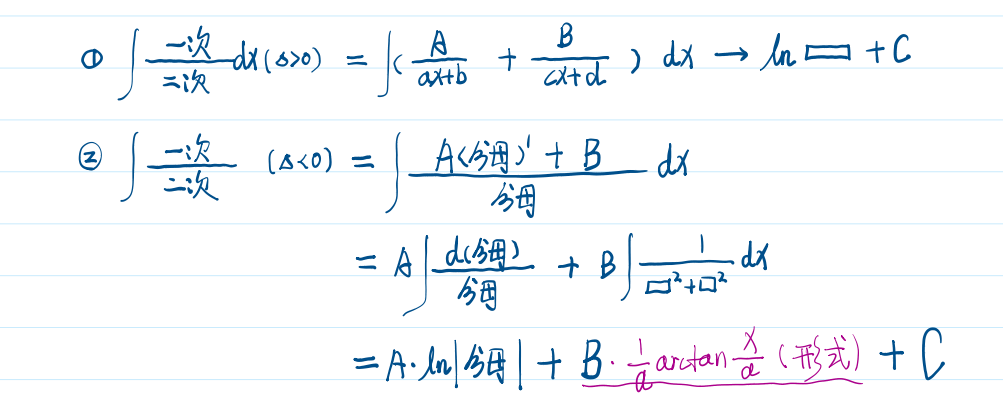 ① ∫ 一次/二次 dx (Δ>0) = ∫( A/(ax+b) + B/(cx+d) ) dx → ln ▭ + C
② ∫ 一次/二次 (Δ<0) = ∫ (A(分母)' + B)/分母 dx
= A ∫ d(分母)/分母 + B ∫ 1/(□²+□²) dx
= A·ln|分母| + B·1/a arctan x/a (形式) + C